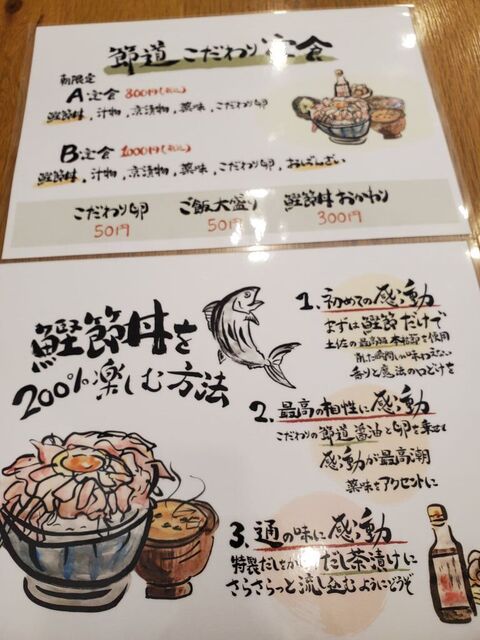 節道 こだわり定食
朝限定
A定食 800円(税込)
鰹節丼、汁物、京漬物、薬味、こだわり卵
B定食 1000円(税込)
鰹節丼、汁物、京漬物、薬味、こだわり卵、おばんざい
こだわり卵 ご飯大盛り 鰹節丼おかわり
50円 50円 300円
鰹節丼を
200%楽しむ方法
1. 初めての感動
まずは鰹節だけで
土佐の最高級本枯節を使用
削った瞬間しか味わえない
香りと魔法のくちどけを
2. 最高の相性に感動
こだわりの節道醤油と卵を乗せ
感動が最高潮
薬味をアクセントに
3. 通の味に感動
特製だしをかけ だし茶漬けに
さらさらっと流し込むようにどうぞ